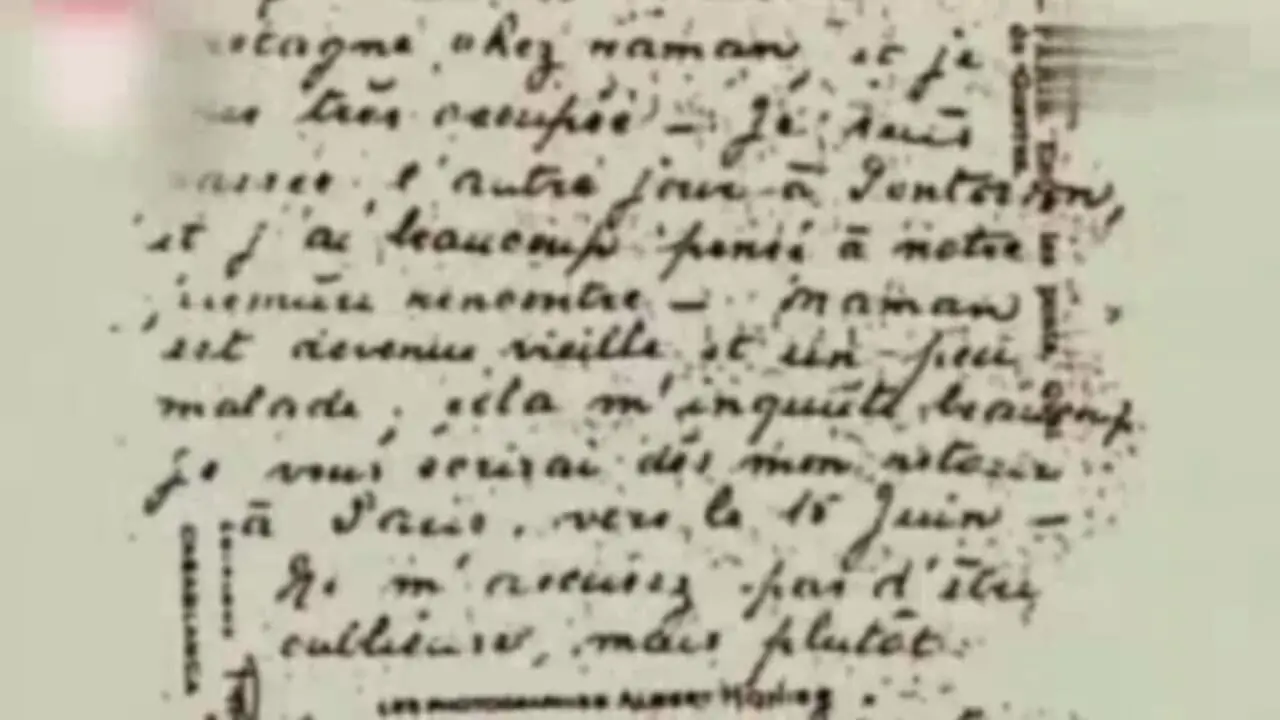 chez maman, et je
très occupée — Je suis
l'autre jour à Pontorson,
et j'ai beaucoup pensé à notre
première rencontre — Maman
est devenue vieille et un peu
malade, cela m'inquiète beaucoup
je vous écrirai dès mon retour
à Paris, vers le 15 Juin —
Ne m'accusez pas d'être
oublieuse, mais plutôt
CASABLANCA
LES PHOTOGRAPHIES ALBERT